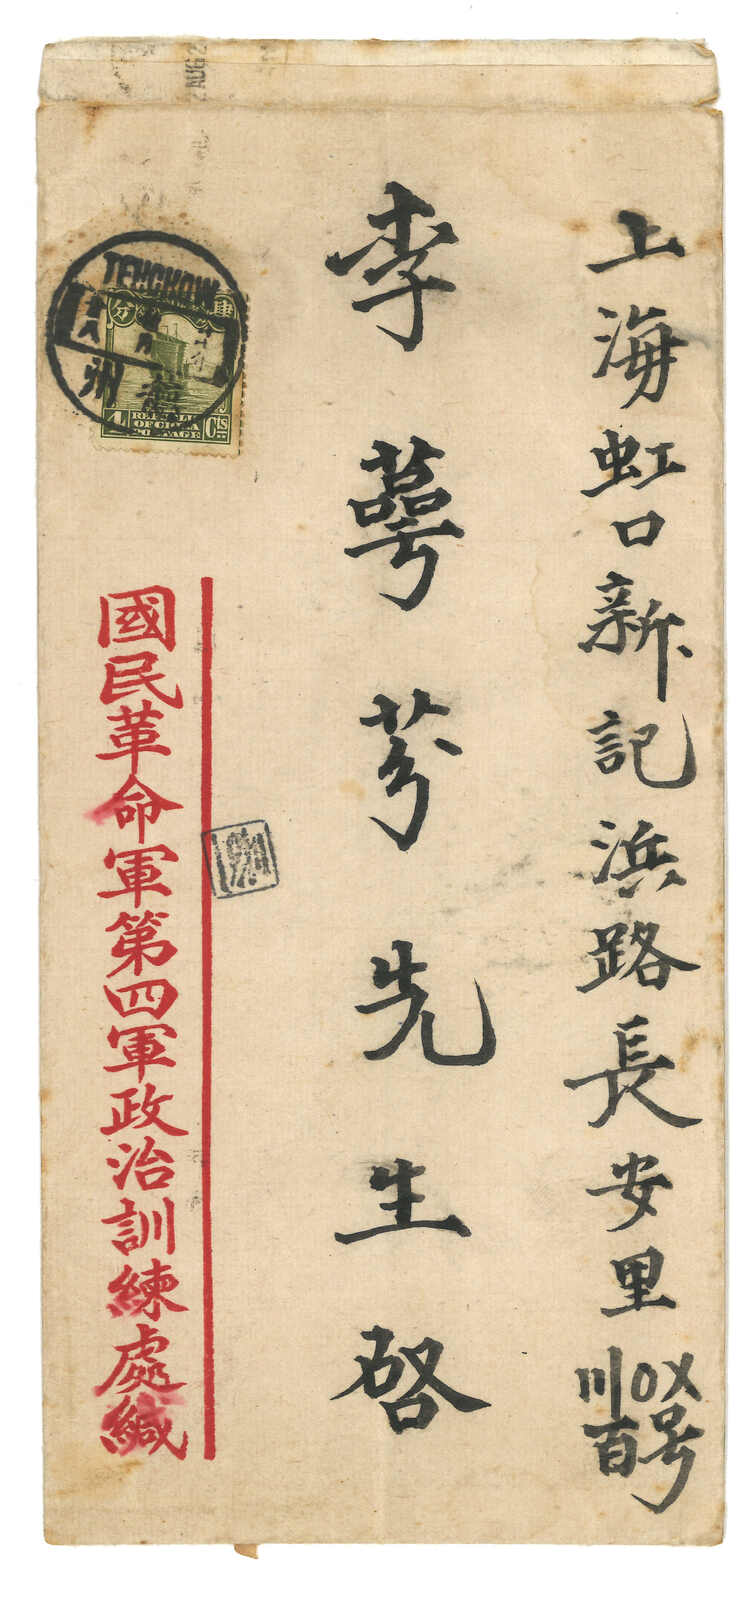 上海虹口新記浜路長安里〣〇〤百号
李萼芬先生啓
國民革命軍第四軍政治訓練處緘
TEHCHOW
州
4 Cts
REPUBLIC
OF CHINA
POSTAGE
AUG 2